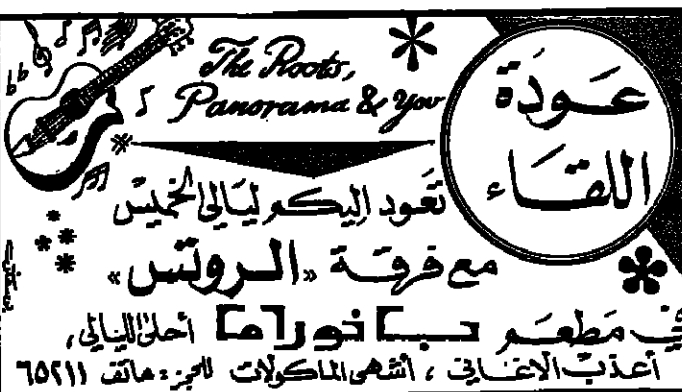 The Roots,
Panorama & You
عودة
اللقاء
تعود إليكم ليالي الخميس
مع فرقة «الروتس»
في مطعم بانوراما أحلى الليالي،
أعذب الاغاني، أشهى المأكولات للحجز: هاتف ٦٥٢١١